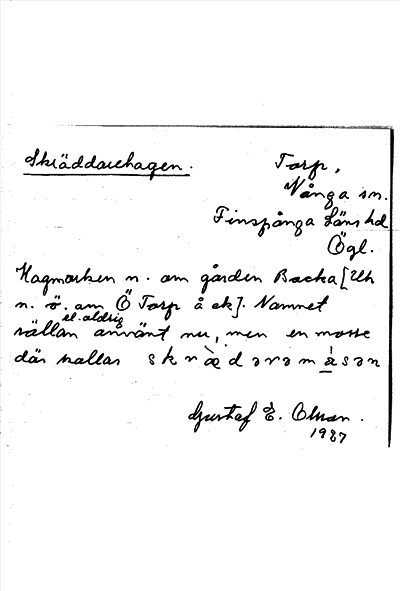 Skräddarehagen.
Torp,
Vånga sn.
Finspånga läns hd
Ögl.
Hagmarken n. om gården Backa [Uh
n. ö. om Ö Torp å ek]. Namnet
el. aldrig
sällan använt nu, men en mosse
där kallas skræ̀dərəmå̀sən
Gustaf E. Olsson.
1927